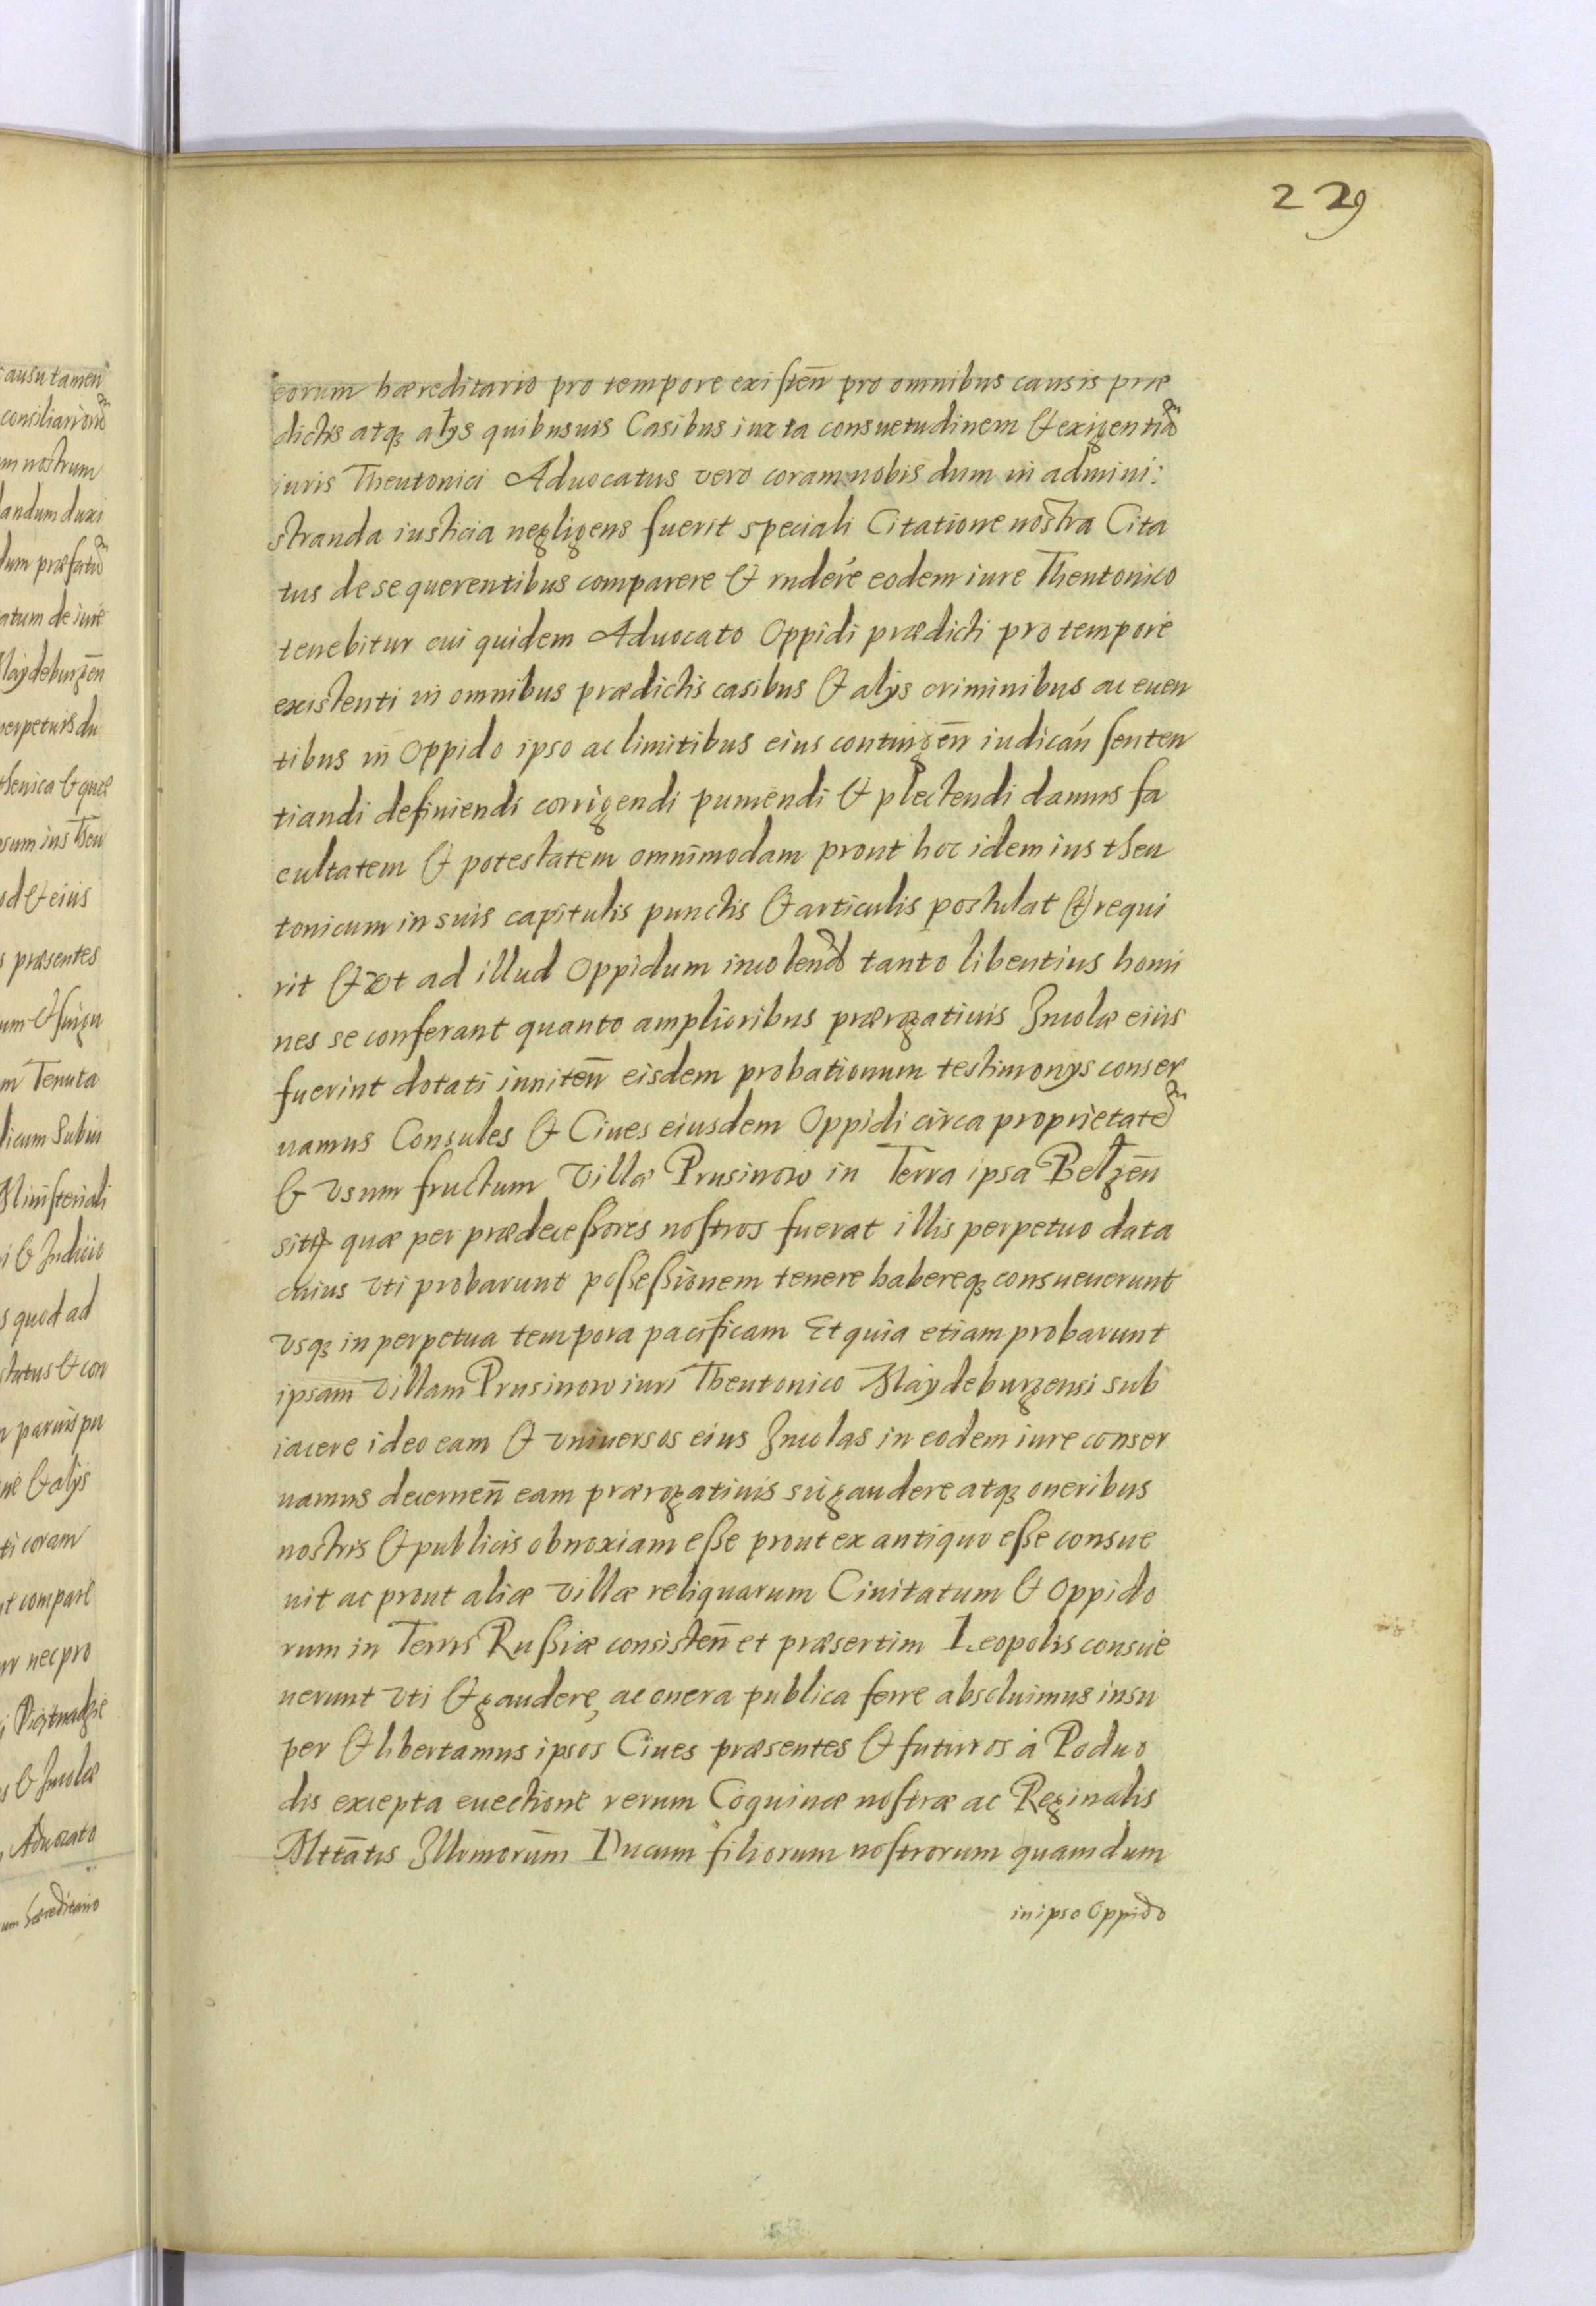 229
eorum hæreditario pro tempore existen̄ pro omnibus causis præ
dictis atq; alys quibusuis Casibus iuxta consuetudinem & exigentiã
iuris Theutonici Aduocatus vero coram nobis dum in admini:
stranda iusticia negligens fuerit speciali Citatione nostra Cita
tus de se querentibus comparere & rndere eodem iure Theutonico
tenebitur cui quidem Aduocato Oppidi prædicti pro tempore
existenti in omnibus prædictis casibus & alys criminibus ac euen
tibus in Oppido ipso ac limitibus eius contingen̄ iudican̄ senten
tiandi definiendi corrigendi puniendi & plectendi damus fa
cultatem & potestatem omnimodam prout hoc idem ius theu
tonicum in suis capitulis punctis & articulis postulat & requi
rit & vt ad illud Oppidum incolend̃ tanto libentius homi
nes se conferant quanto amplioribus prærogatiuis Incolæ eius
fuerint dotati inniten̄ eisdem probationum testimonys conser
uamus Consules & Ciues eiusdem Oppidi circa proprietatẽ
& vsum fructum villæ Prusinow in Terra ipsa Belzen̄
sitæ quæ per prædecessores nostros fuerat illis perpetuo data
cuius vti probarunt possessionem tenere habereq; consueuerunt
vsq; in perpetua tempora pacificam Et quia etiam probarunt
ipsam villam Prusinow iuri Theutonico Maydeburgensi sub
iacere ideo eam & vniuersos eius Incolas in eodem iure conser
uamus decernen̄ eam prærogatiuis sui gaudere atq; oneribus
nostris & publicis obnoxiam esse prout ex antiquo esse consue
uit ac prout aliæ villæ reliquarum Ciuitatum & Oppido
rum in Terris Russiæ consisten̄ et præsertim Leopolis consue
uerunt vti & gaudere, ac onera publica ferre absoluimus insu
per & libertamus ipsos Ciues præsentes & futuros à Poduo
dis excepta euectione rerum Coquinæ nostræ ac Reginalis
Mttātis Illrmorūm Ducum filiorum nostrorum quamdum
in ipso Oppido